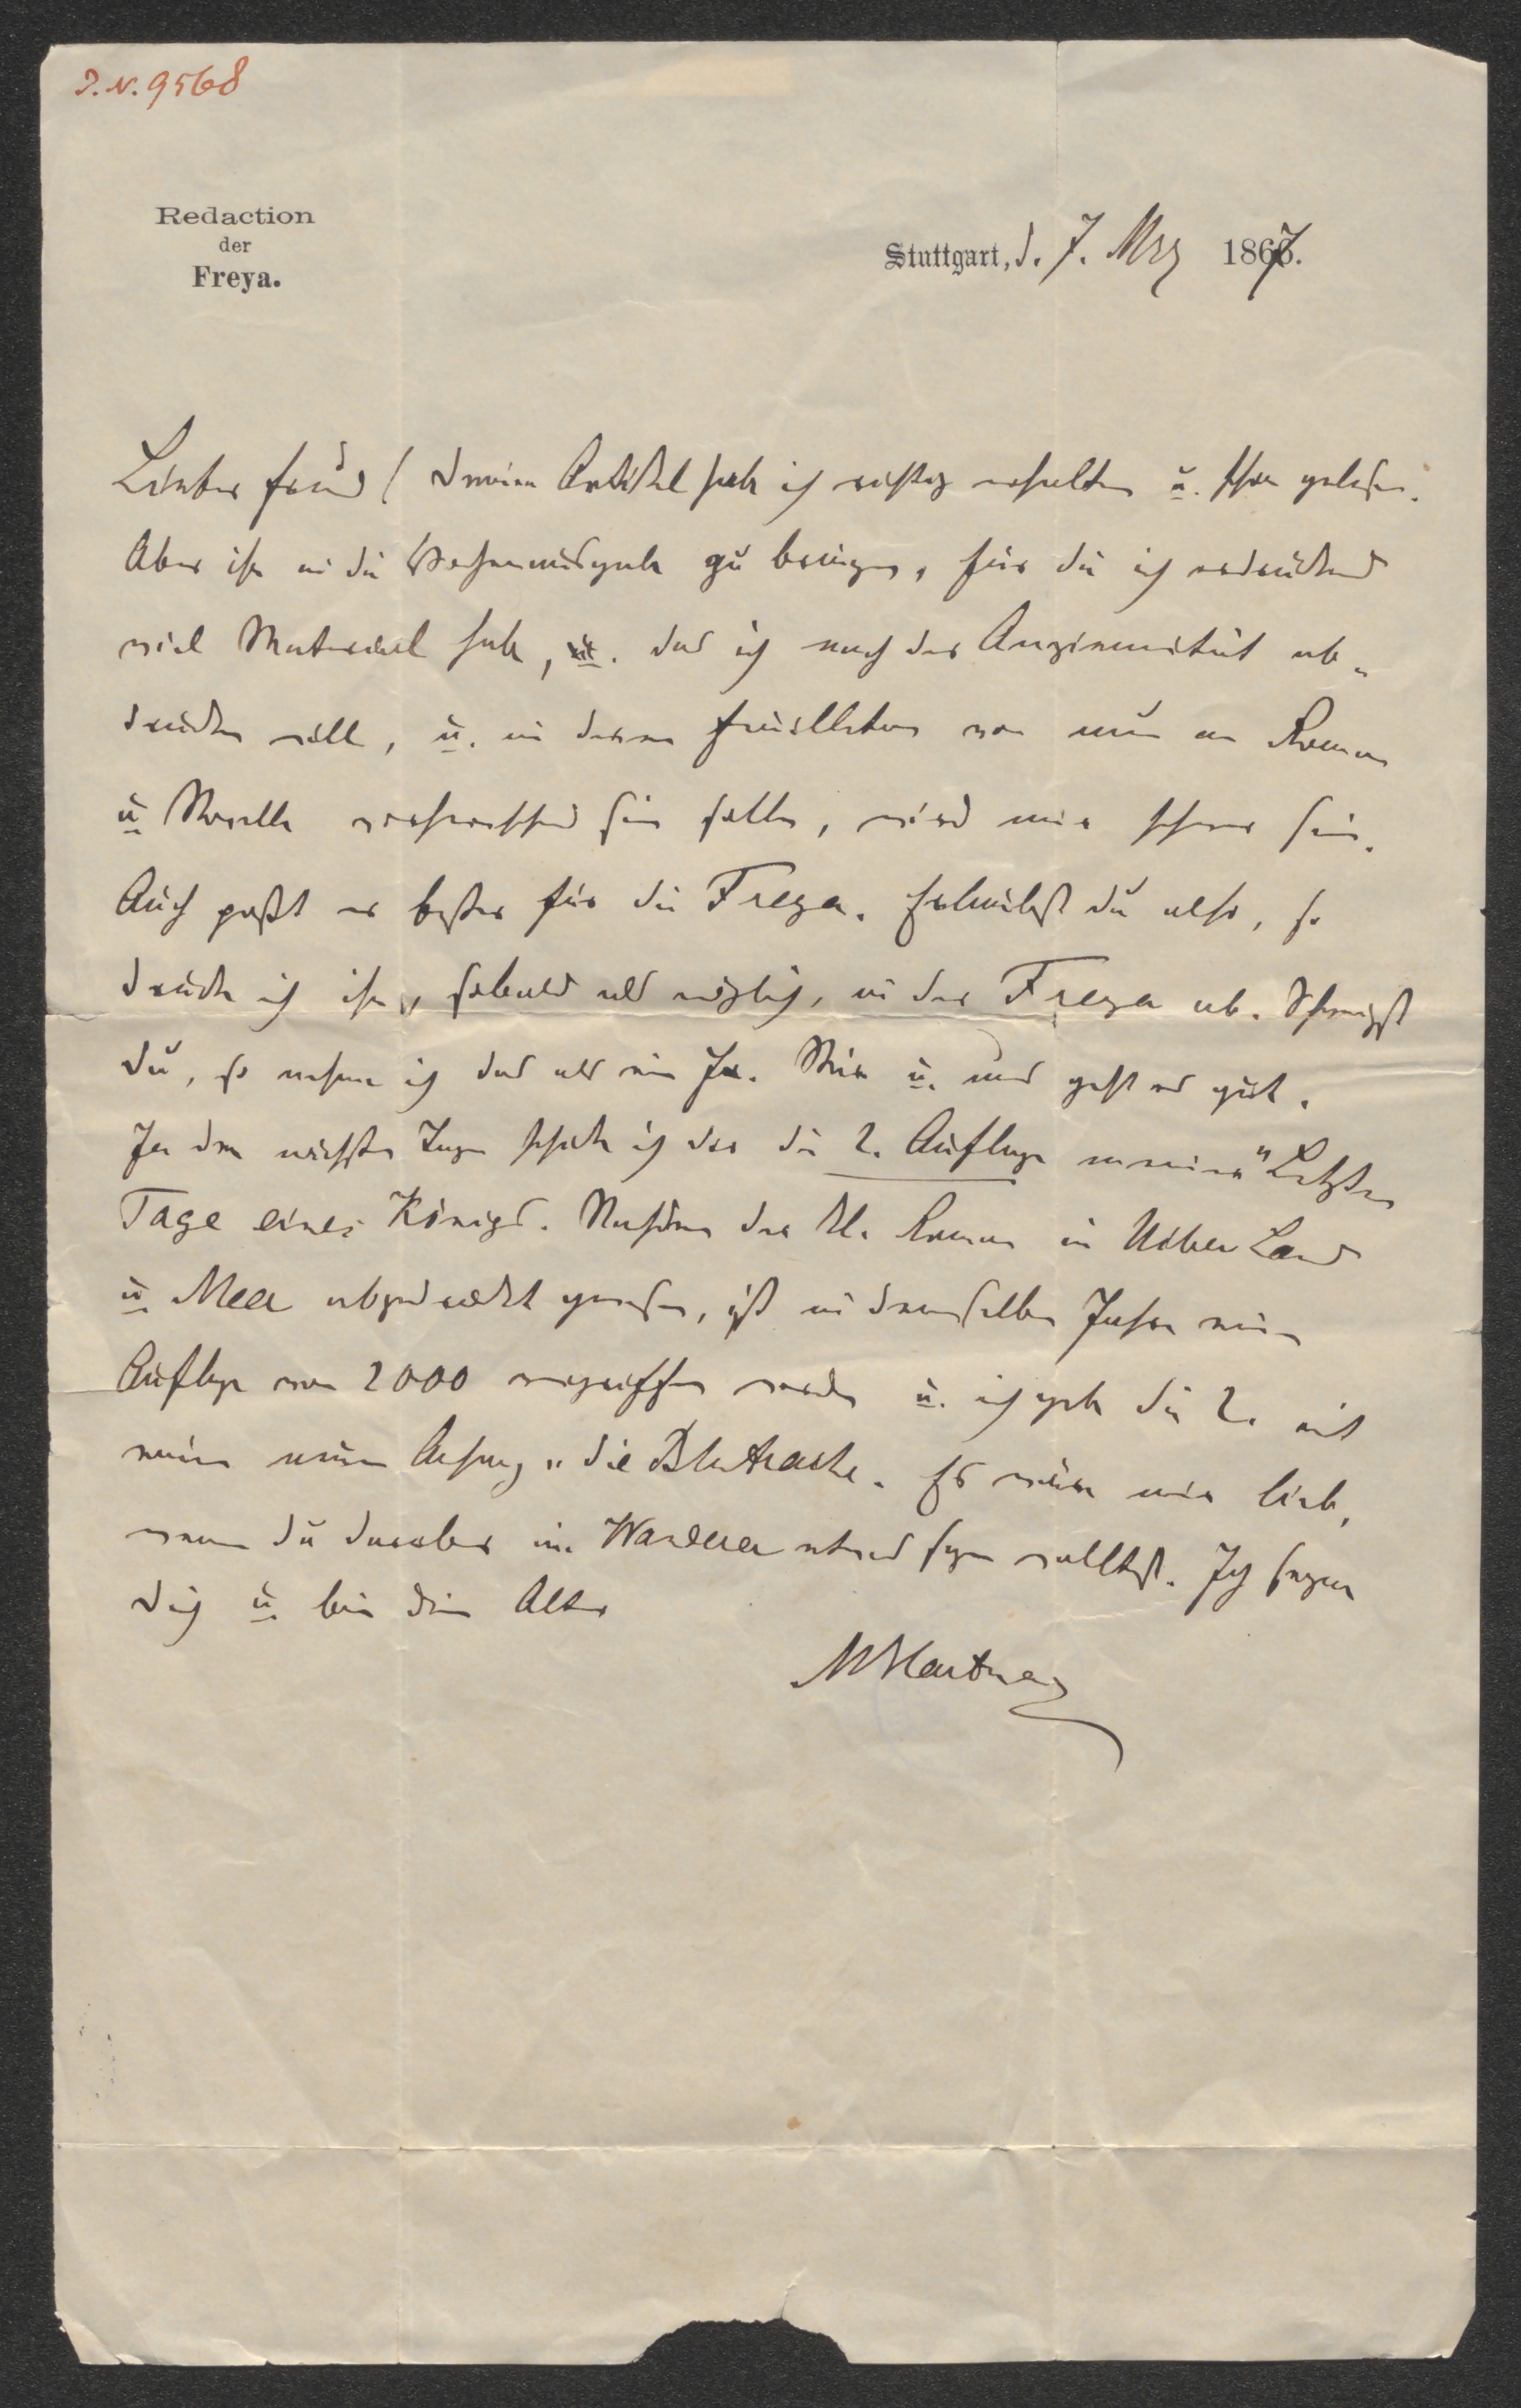 I. N. 9568
Redaction
der
Freya.
Stuttgart, d. 7. Mrz 1867.
Liebster Freund! Deinen Artikel hab ich richtig erhalten u. schon gelesen.
Aber ihn in die Wochenausgabe zu bringen, für die ich erdrückend
viel Material habe, u. das ich nach der Anziennität ab-
drucken will, u. in deren Feuilleton von nun an Roman
u Novelle vorherrschend sein sollen, wird mir schwer sein.
Auch paßt er besser für die Freya. Erlaubst du also, so
drucke ich ihn, sobald als möglich, in der Freya ab. Schweigst
du, so nehme ich das als ein Ja. Mir u. uns geht es gut.
In den nächsten Tagen schicke ich dir die 2. Auflage meiner "Letzten
Tage eines Königs. Nachdem der kl. Roman in Ueber Land
u Meer abgedruckt gewesen, ist in demselben Jahre eine
Auflage von 2000 vergriffen worden u. ich gebe die 2. mit
einem neuen Anhang "die Blutrache. Es wäre mir lieb,
wenn du darüber im Wanderer etwas sagen wolltest. Ich
dich u. bin dein Alter
MHartmann